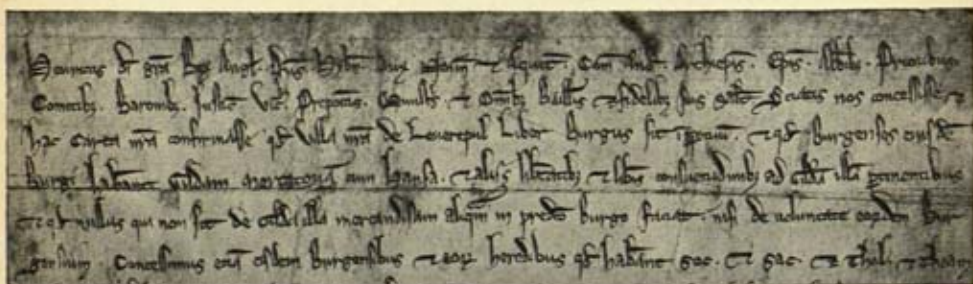 Henricus di gra Rex Angl. Dns Hybn. Dux Normn. & Aquit. Com And. Archiepis. Epis. Abbibz. Prioribus.
Comitibz. Baronibz. Justic. Vic. Prepositis. Ministris. & Omibz Ballivis & fidelibz suis saltm. Sciatis nos concessisse &
hac Carta nra confirmasse qd Villa nra de Leverepul Liber Burgus sit imppetuum. & qd Burgenses eiusde
Burgi habeant Gildam mercatoriam cum Hansa. & aliis libertatibz & libis consuetudinibz ad Gildam illam pertinentibus
Et qd nullus qui non sit de Gilda illa mercandisam aliqam in predco Burgo faciat. nisi de voluntate eordem Bur
gensium. Concessimus etia eisdem Burgensibus & eor heredibus qd habeant soc. & sac. & Thol. & Theam